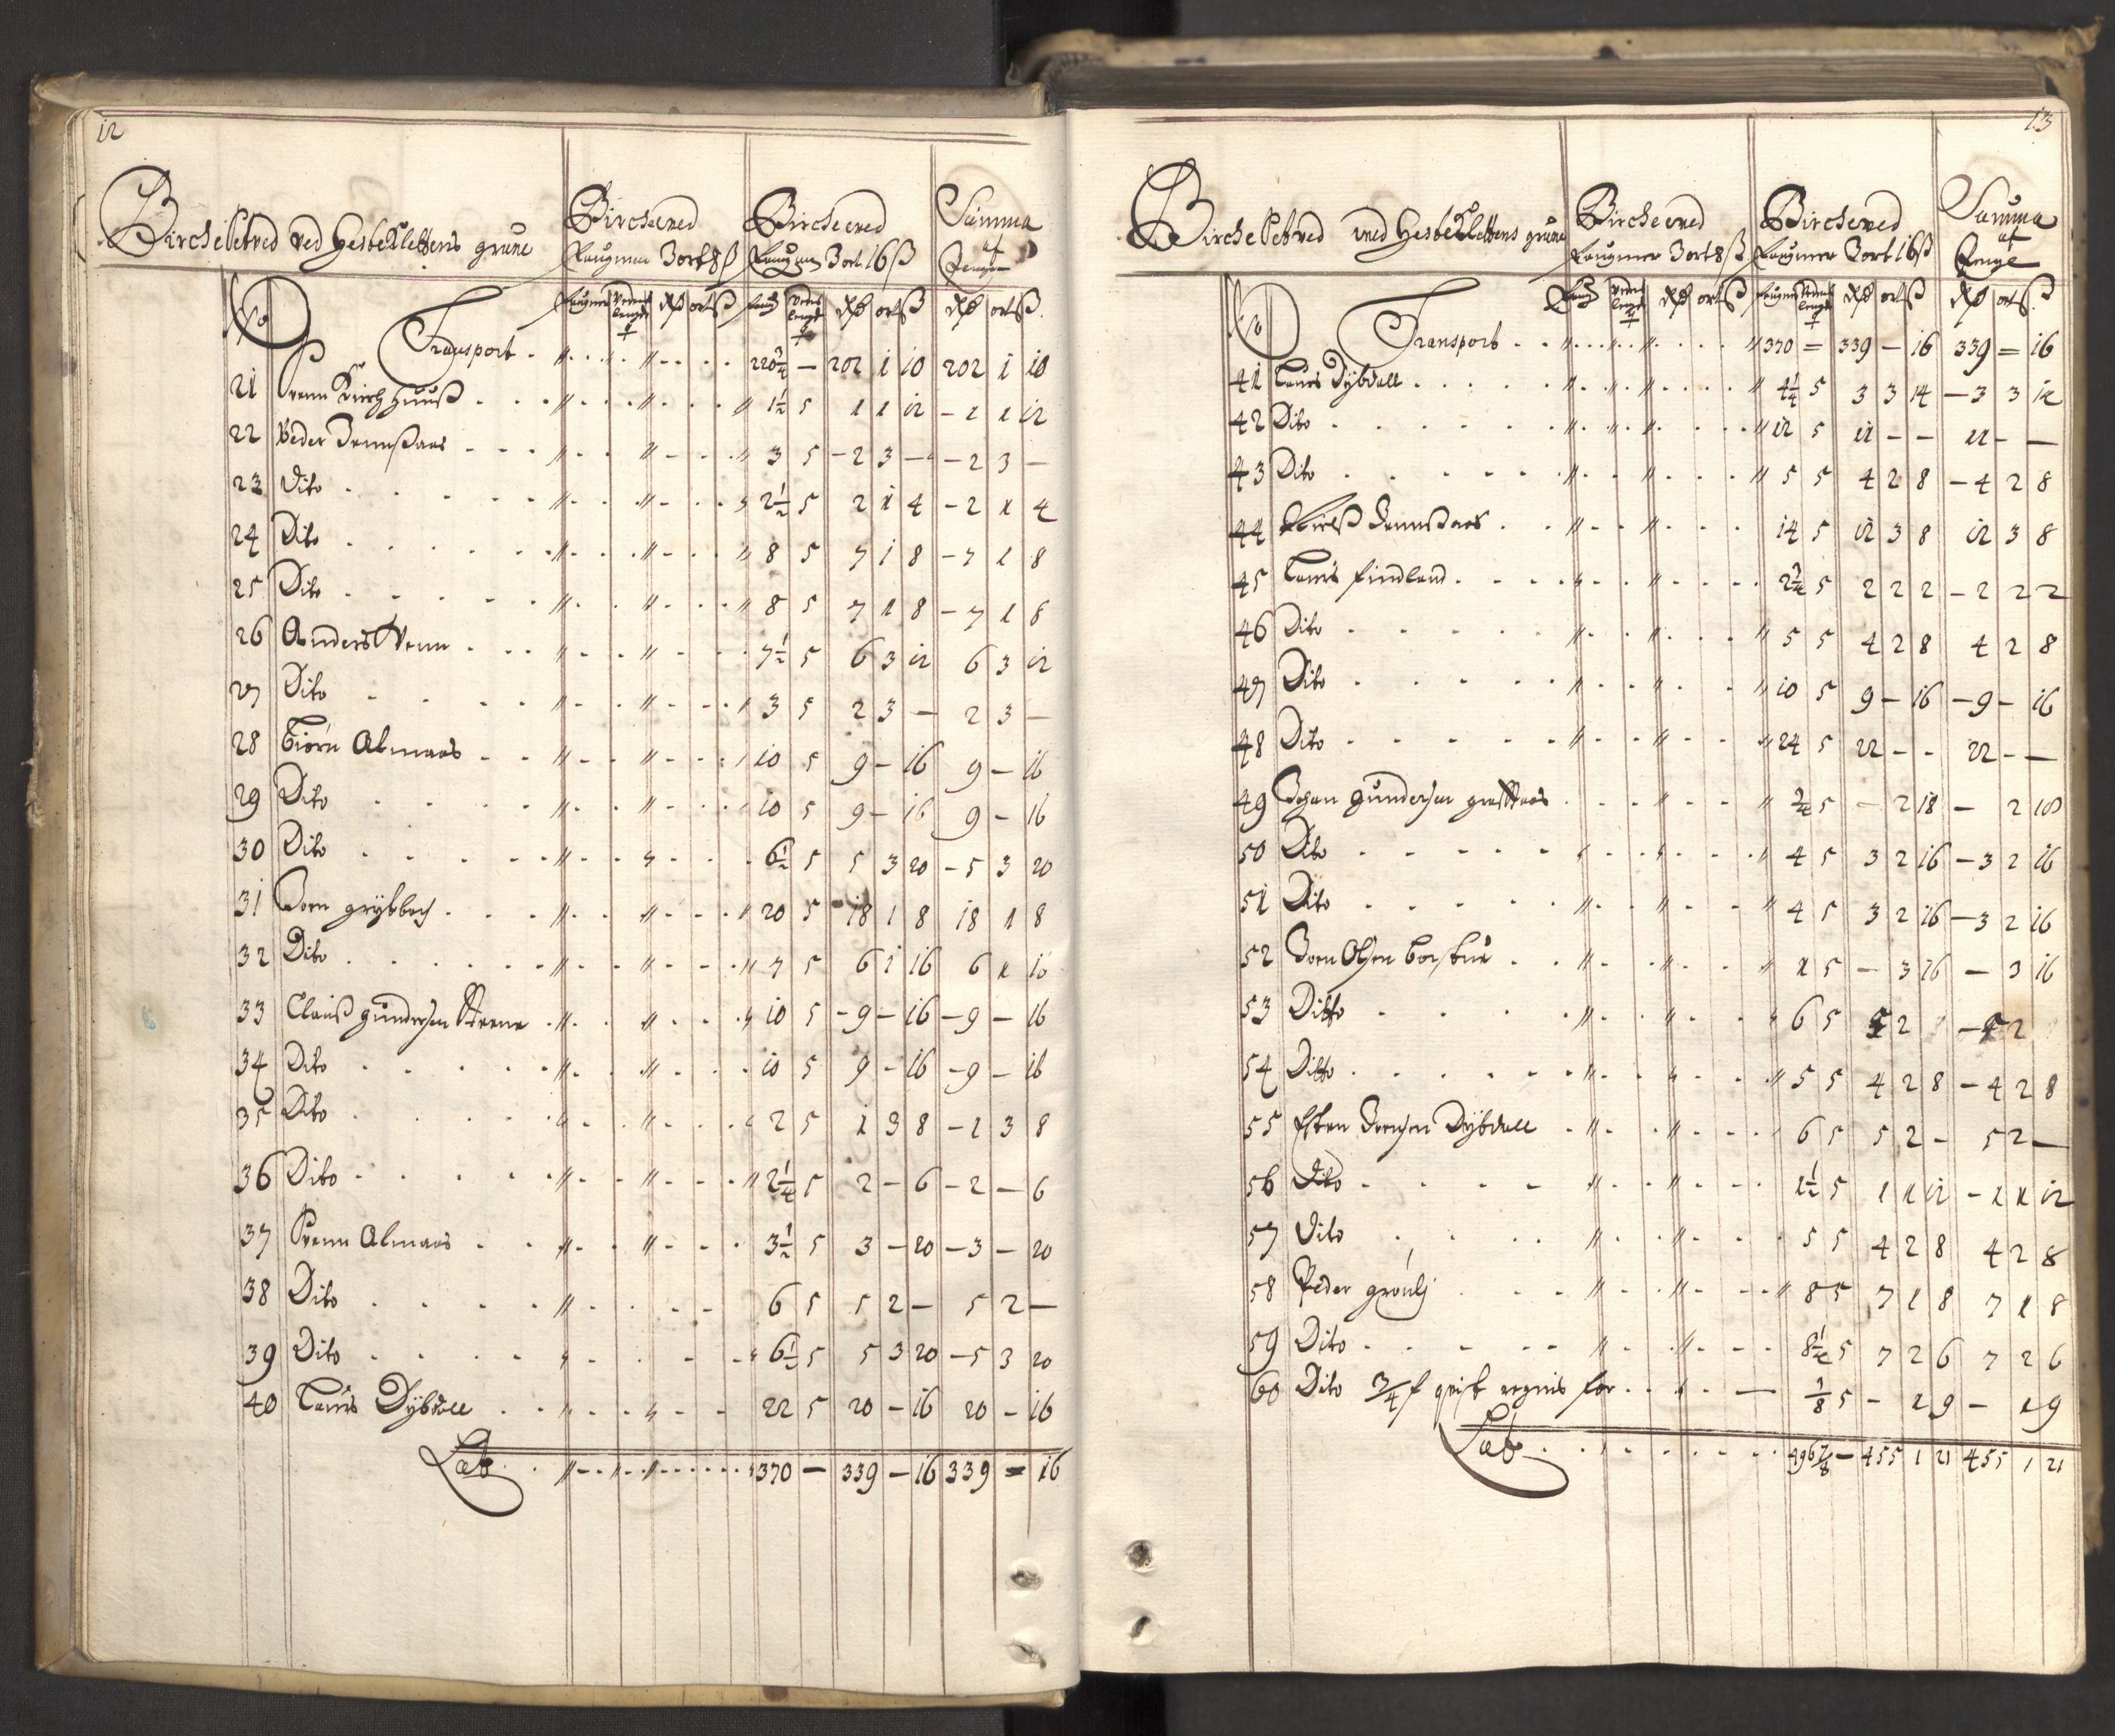 12
Bircheſetved ved Hestekletens grune Bircheved Bircheved Summa
Laugmer 3 ort 8 ß Laugmer 3 ort 16 ß af Penge
No Laugmer Veens lengd Rd ort ß Laug Veens lengd Rd ort ß Rd ort ß
Transport 220 3/4 — 202 1 10 202 1 10
21 Svenn Kirchhuuß 1 1/2 5 1 1 12 - 1 1 12
22 Peder 3 5 - 2 3 — - 2 3 —
23 Dito 2 1/2 5 2 1 4 - 2 1 4
24 Dito 8 5 7 1 8 - 7 1 8
25 Dito 8 5 7 1 8 - 7 1 8
26 Anders Venn 7 1/2 5 6 3 12 6 3 12
27 Dito 3 5 2 3 — 2 3 —
28 Biørn Almaas 10 5 9 — 16 9 — 16
29 Dito 10 5 9 — 16 9 — 16
30 Dito 6 1/2 5 5 3 20 - 5 3 20
31 Joen grytbach 20 5 18 1 8 18 1 8
32 Dito 7 5 6 1 16 6 1 16
33 Clauß gundersen Steene 10 5 - 9 — 16 - 9 — 16
34 Dito 10 5 9 — 16 - 9 — 16
35 Dito 2 5 1 3 8 - 1 3 8
36 Dito 2 1/4 5 2 — 6 - 2 — 6
37 Svenn Almaas 3 1/2 5 3 — 20 - 3 — 20
38 Dito 6 5 5 2 — 5 2 —
39 Dito 6 1/2 5 5 3 20 - 5 3 20
40 Laurs Dybdall 22 5 20 — 16 20 — 16
Lat 370 — 339 — 16 339 = 16
13
Bircheſetved ved Hestekletens grune Bircheved Bircheved Summa
Laugmer 3 ort 8 ß Laugmer 3 ort 16 ß af Penge
No Laug Veens lengd Rd ort ß Laugmer Veens lengd Rd ort ß Rd ort ß
Transport 370 = 339 — 16 339 = 16
41 Laurs Dybdall 4 1/4 5 3 3 14 - 3 3 14
42 Dito 12 5 11 — — 11 — —
43 Dito 5 5 4 2 8 - 4 2 8
44 14 5 12 3 8 12 3 8
45 Laurs findland 2 3/4 5 2 2 2 - 2 2 2
46 Dito 5 5 4 2 8 4 2 8
47 Dito 10 5 9 — 16 - 9 — 16
48 Dito 24 5 22 — — 22 — —
49 Johan gundersen 3/4 5 — 2 18 — 2 18
50 Dito 4 5 3 2 16 - 3 2 16
51 Dito 4 5 3 2 16 - 3 2 16
52 Joen Olsen 1 5 — 3 16 — 3 16
53 Ditto 6 5 5 2 - 5 2
54 Ditto 5 5 4 2 8 - 4 2 8
55 Esten Joensen Dybdall 6 5 5 2 — 5 2 —
56 Dito 1 1/2 5 1 1 12 - 1 1 12
57 Dito 5 5 4 2 8 4 2 8
58 Peder grønli 8 5 7 1 8 7 1 8
59 Dito 8 1/4 5 7 2 6 7 2 6
60 Dito 3/4 f qvist regnis for 1/8 5 — 1 9 — 1 9
Lat 496 7/8 — 455 1 21 455 1 21